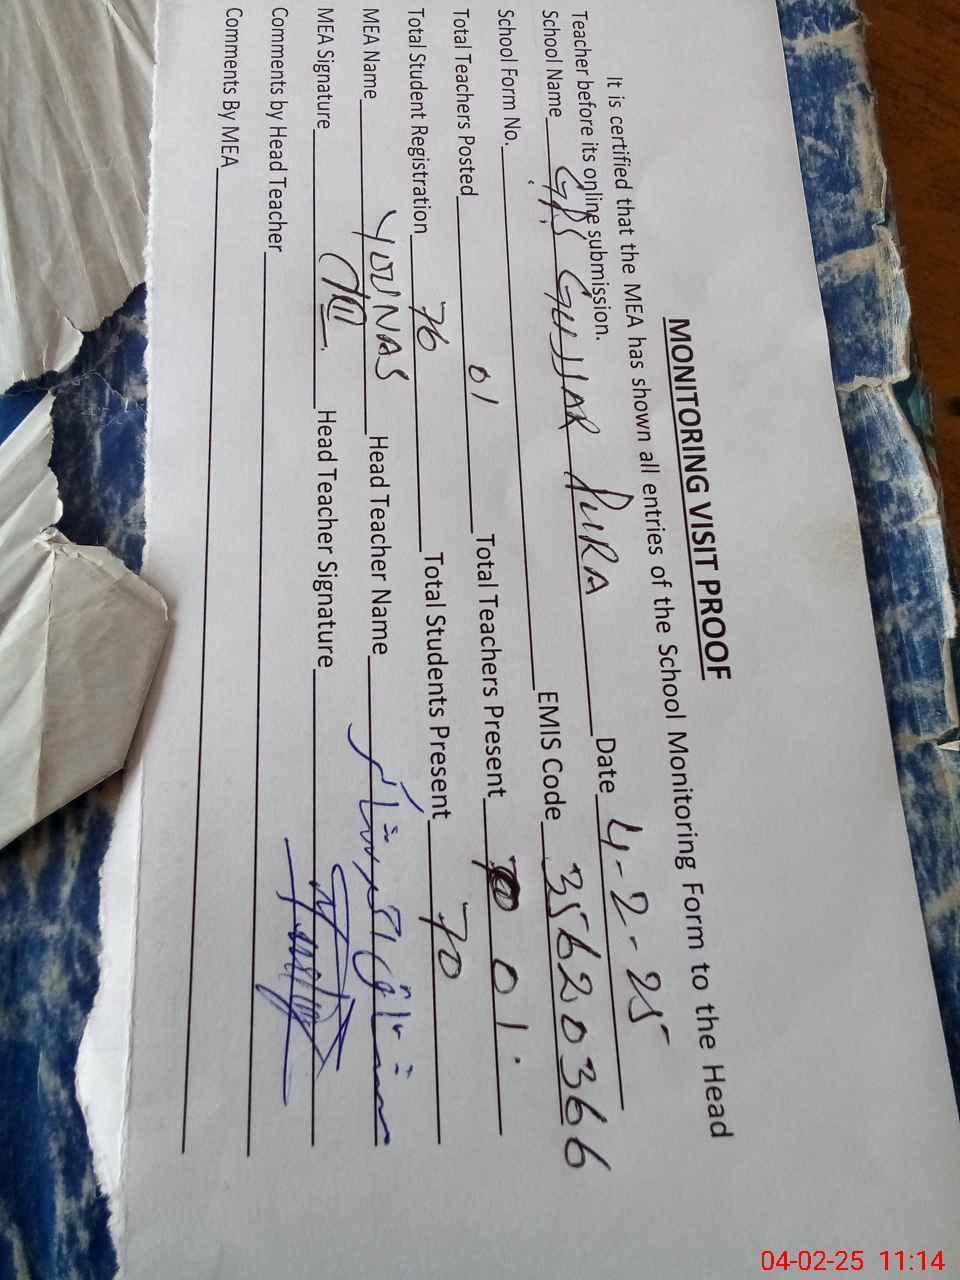 MONITORING VISIT PROOF
It is certified that the MEA has shown all entries of the School Monitoring Form to the Head
Teacher before its online submission.
School Name GPS GUJJAR PURA Date 4-2-25
School Form No. EMIS Code 35620366
Total Teachers Posted 01 Total Teachers Present 01
Total Student Registration 76 Total Students Present 70
MEA Name YOUNAS Head Teacher Name
MEA Signature Head Teacher Signature
Comments by Head Teacher
Comments By MEA
04-02-25 11:14